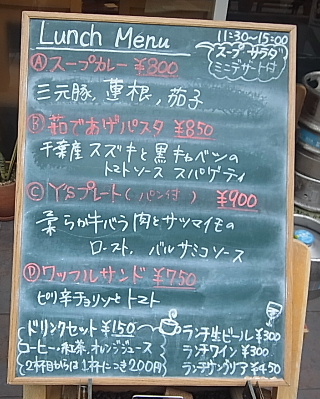 Lunch Menu
11:30~15:00
スープ サラダ
ミニデザート付
Ⓐスープカレー ¥800
三元豚, 蓮根, 茄子
Ⓑ茹であげパスタ ¥850
千葉産スズキと黒キャベツの
トマトソース スパゲティ
Ⓒ Y'Sプレート(パン付) ¥900
柔らか牛バラ肉とサツマイモの
ロースト, バルサミコソース
Ⓓワッフルサンド ¥750
ピリ辛チョリソとトマト
ドリンクセット ¥150
コーヒー・紅茶・オレンジジュース
2杯目からは1杯につき200円
ランチ生ビール ¥300
ランチワイン ¥300
ランチサングリア ¥450